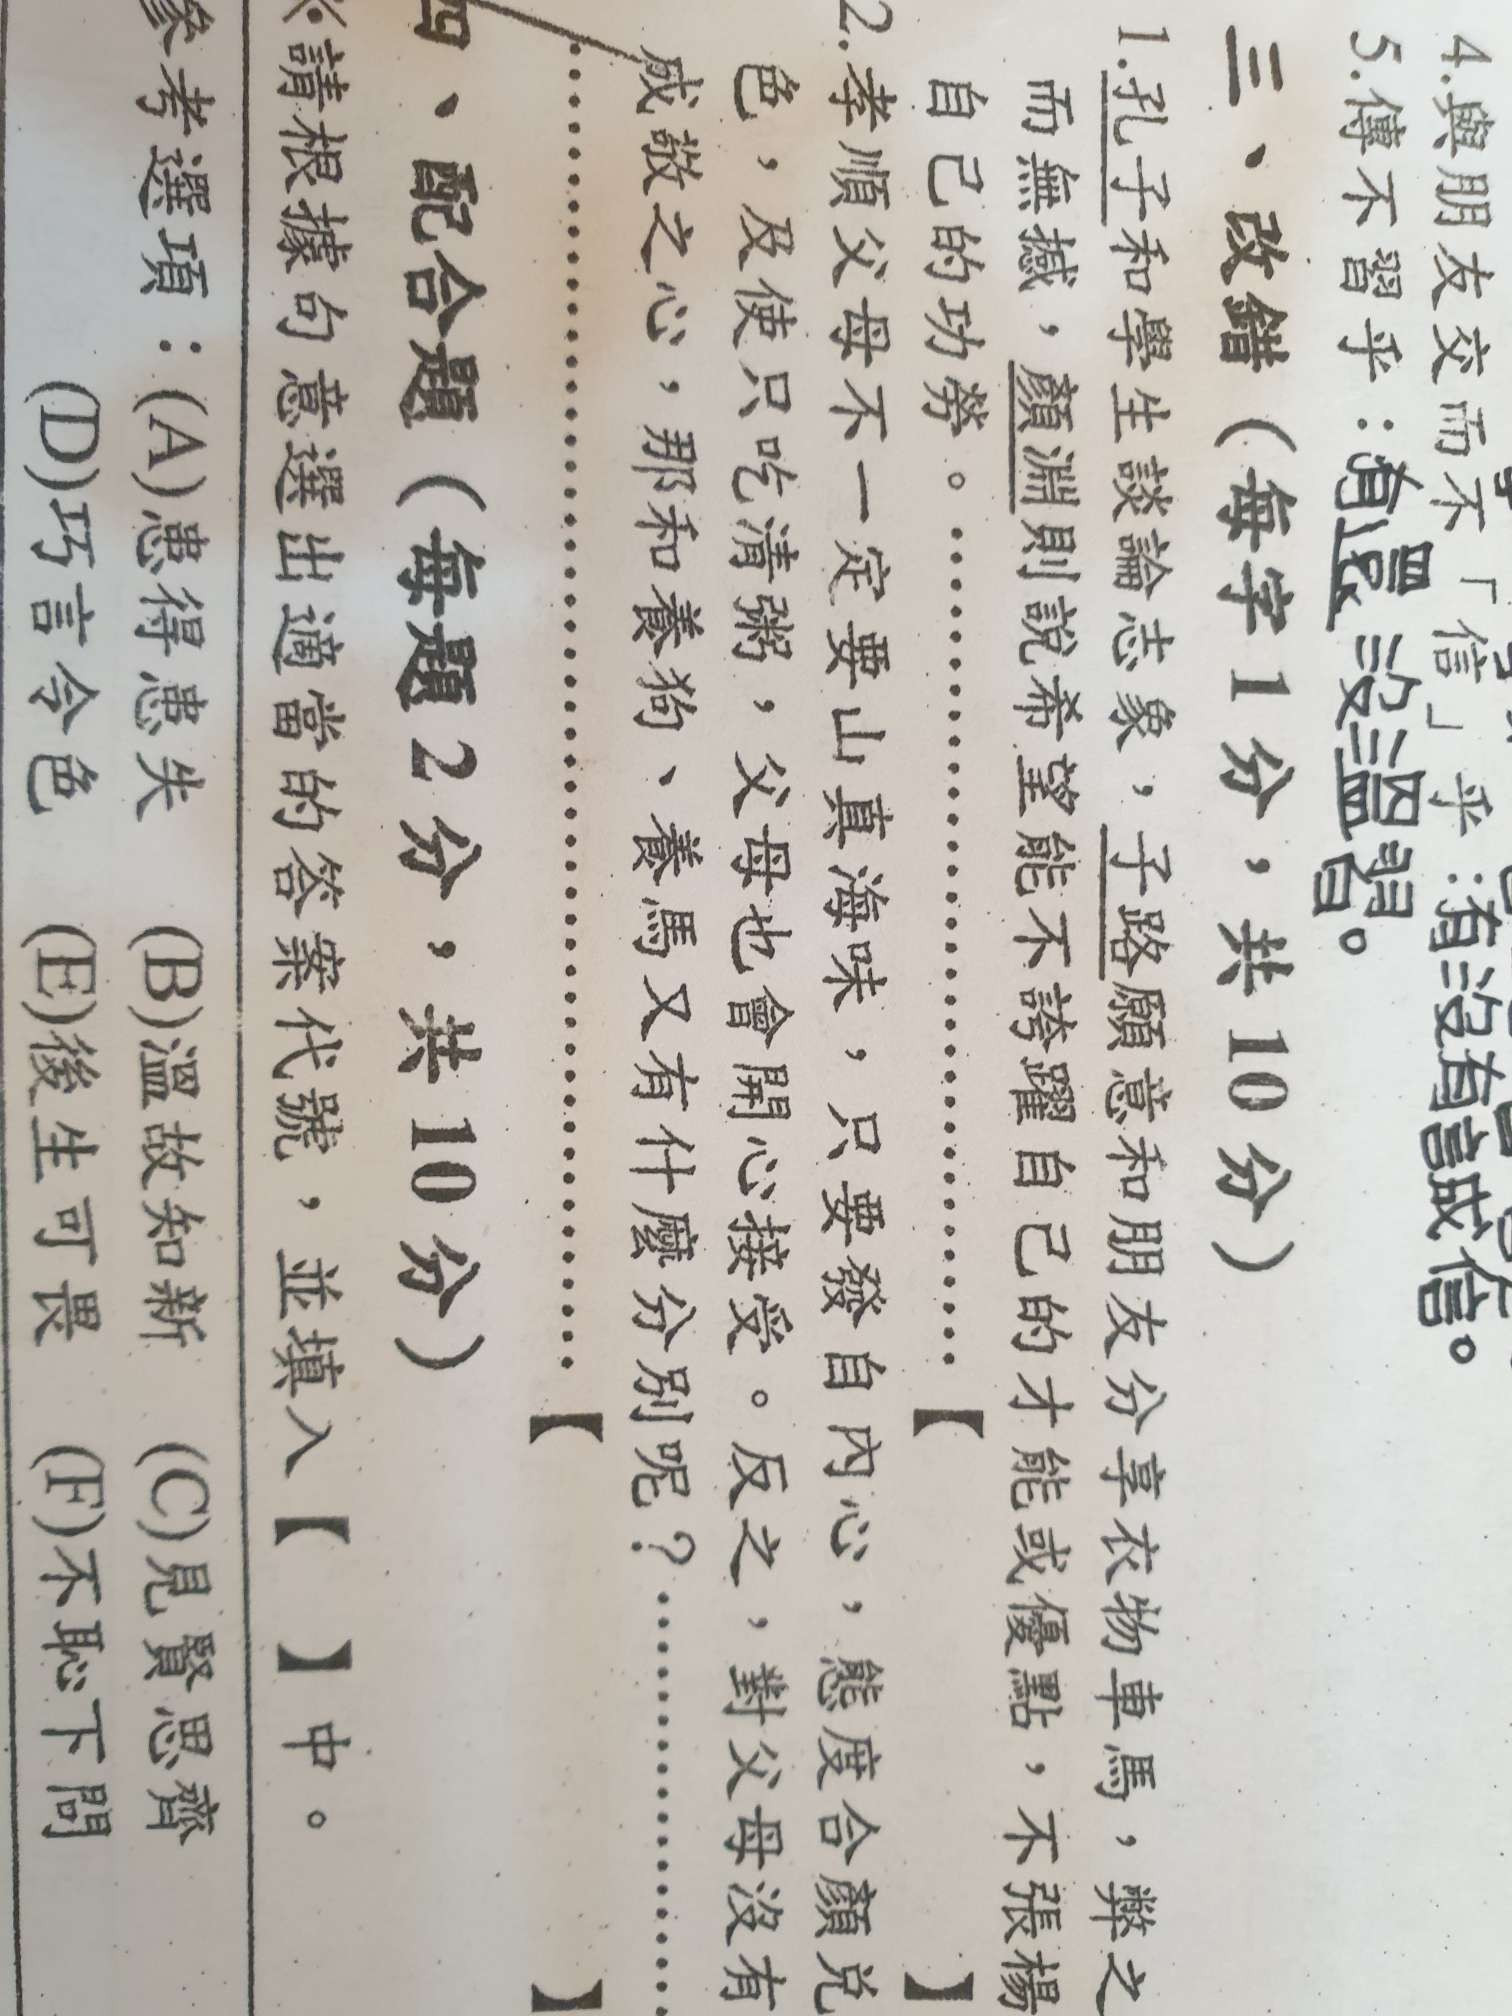 4.與朋友交而不「信」乎：有沒有誠信。
5.傳不習乎：有還沒溫習。
三、改錯（每字1分，共10分）
1.孔子和學生談論志象，子路願意和朋友分享衣物車馬，弊之
而無撼，顏淵則說希望能不誇躍自己的才能或優點，不張楊
自己的功勞。……………………………【 】
2.孝順父母不一定要山真海味，只要發自內心，態度合顏兌
色，及使只吃清粥，父母也會開心接受。反之，對父母沒有
成敬之心，那和養狗、養馬又有什麼分別呢？……………
……………………………………………【 】
四、配合題（每題2分，共10分）
※請根據句意選出適當的答案代號，並填入【 】中。
參考選項：(A)患得患失 (B)溫故知新 (C)見賢思齊
(D)巧言令色 (E)後生可畏 (F)不恥下問